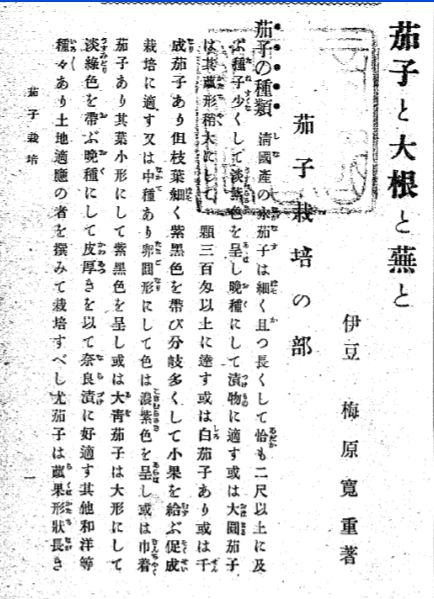 茄子と大根と蕪と
伊豆 梅原寛重著
茄子栽培の部
茄子の種類 淸國產の水茄子は細く且つ長くして恰も二尺以上に及
ぶ種子少くして淡紫色を呈し晩種にして漬物に適す或は大圓茄子
は其蓏形稍大にして一顆三百匁以上に達す或は白茄子あり或は千
成茄子あり但枝葉細く紫黑色を帶び分岐多くして小果を給ぶ促成
栽培に適す又は中種あり卵圓形にして色は濃紫色を呈し或は巾着
茄子あり其葉小形にして紫黑色を呈し或は大靑茄子は大形にして
淡綠色を帶ぶ晩種にして皮厚きを以て奈良漬に好適す其他和洋等
種々あり土地適應の者を撰みて栽培すべし尤茄子は蓏果形狀長き
茄子栽培
一